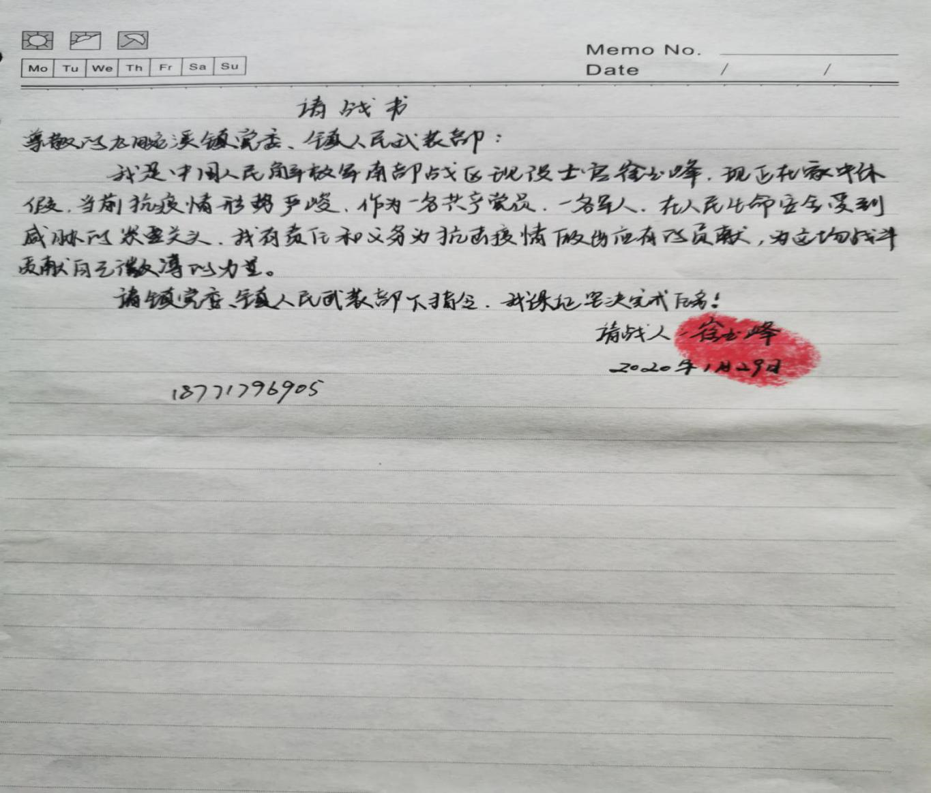 Memo No.
Mo Tu We Th Fr Sa Su
Date / /
请战书
尊敬的龙胆溪镇党委、镇人民武装部：
我是中国人民解放军南部战区现役士官徐玉峰，现正在家中休
假，当前抗疫情形势严峻，作为一名共产党员，一名军人，在人民生命安全受到
威胁的紧要关头，我有责任和义务为抗击疫情做出应有的贡献，为这场战斗
贡献自己微薄的力量。
请镇党委、镇人民武装部下指令，我保证坚决完成任务！
请战人：徐玉峰
2020年1月29日
18771796905